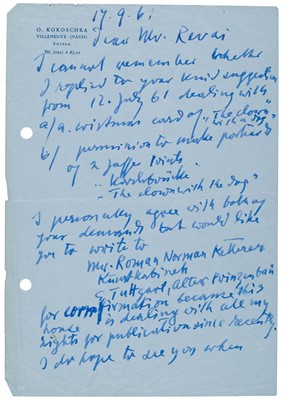 O. KOKOSCHKA
VILLENEUVE (VAUD)
Suisse
17.9.61
Dear Mr. Revai
I cannot remember whether
I replied to your kind suggestion
from 12. July 61 dealing with
a/ a cristmas card of "The clown
with a dog"
b/ permission to make
of 2 Jaffe
"The clown with the dog"
I personally agree with both of
your demands but would like
you to write to
Mr. Roman Norman Ketterer
Kunstkabinett
Stuttgart, Alter Postplatz
for confirmation because this
house is dealing with all my
rights for publication since recently.
I do hope to see you when